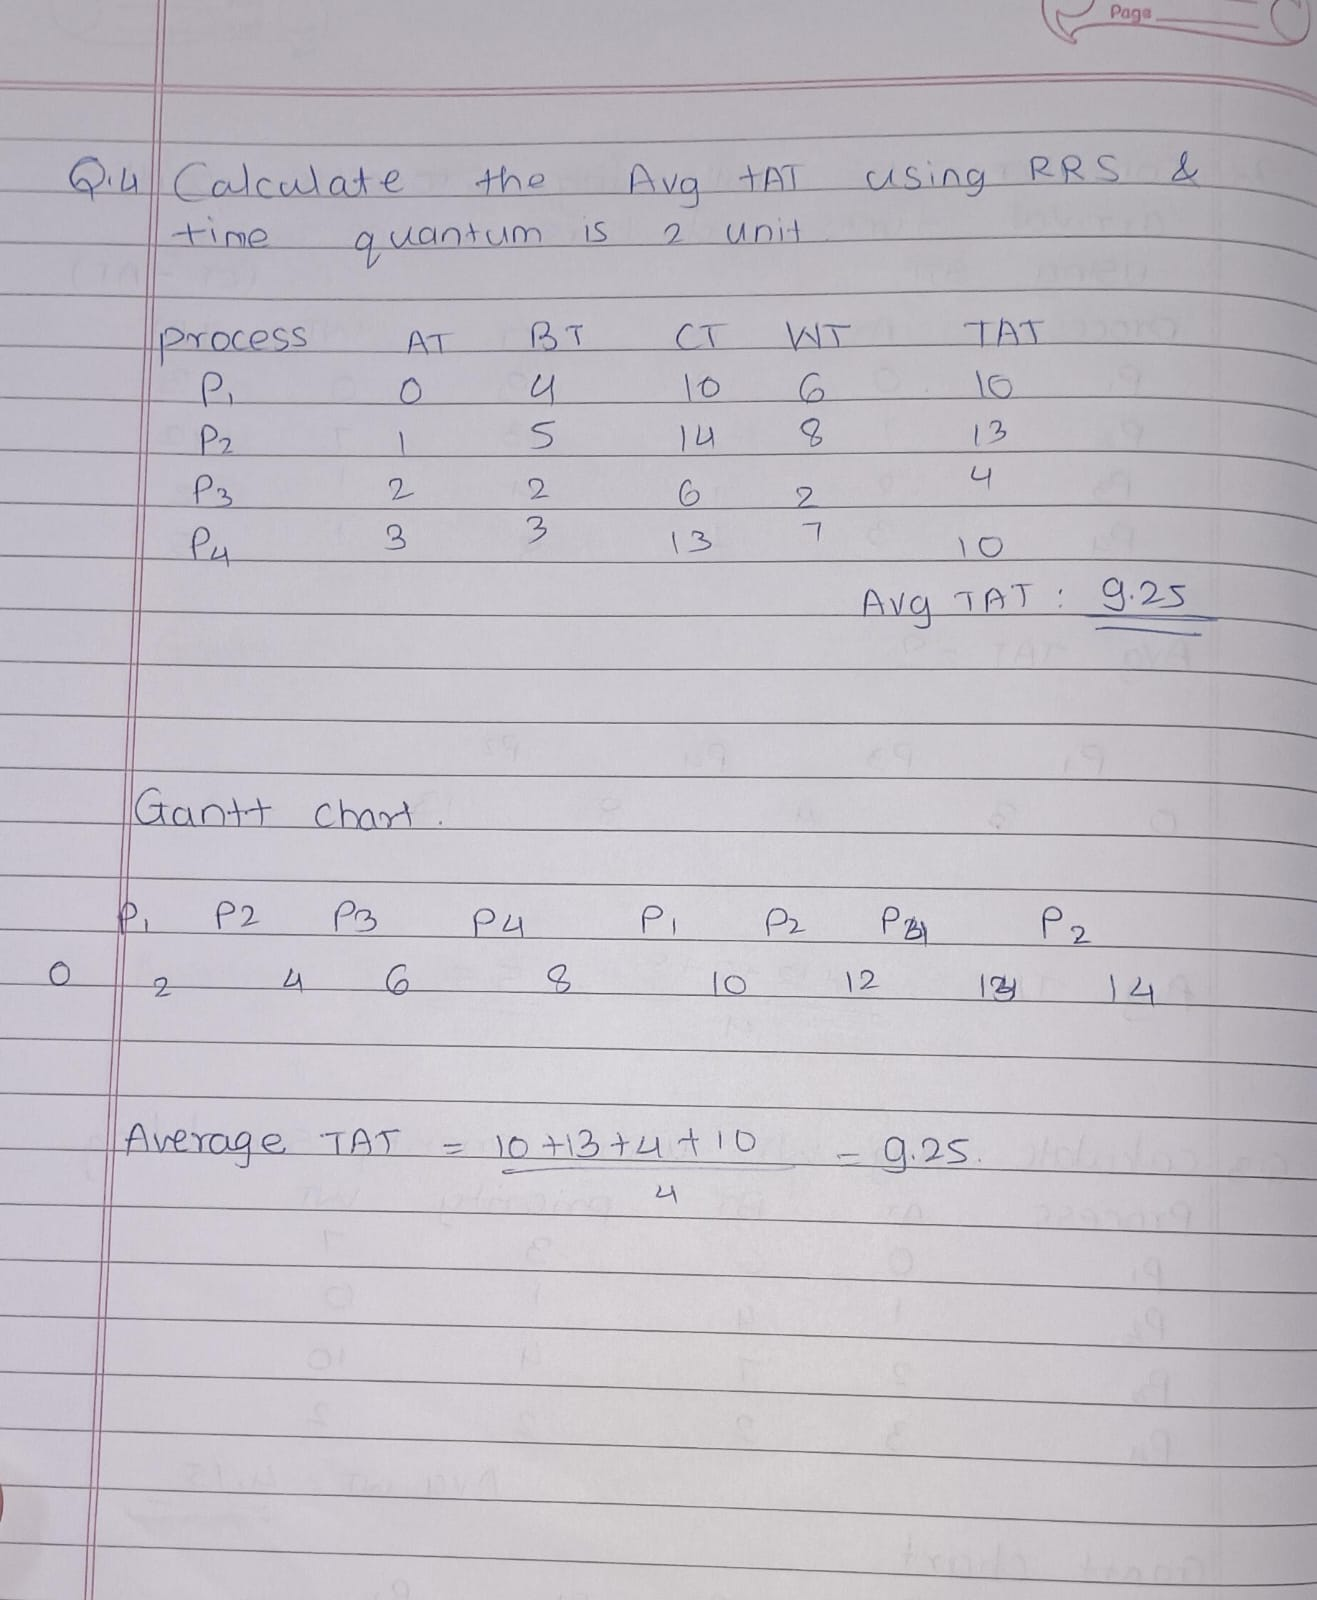 Page
Q.4 Calculate the Avg tAT using RRS &
time quantum is 2 unit
process AT BT CT WT TAT
P1 0 4 10 6 10
P2 1 5 14 8 13
P3 2 2 6 2 4
P4 3 3 13 7 10
Avg TAT : 9.25
Gantt chart.
P1 P2 P3 P4 P1 P2 P4 P2
0 2 4 6 8 10 12 13 14
Average TAT = 10+13+4+10 = 9.25.
4